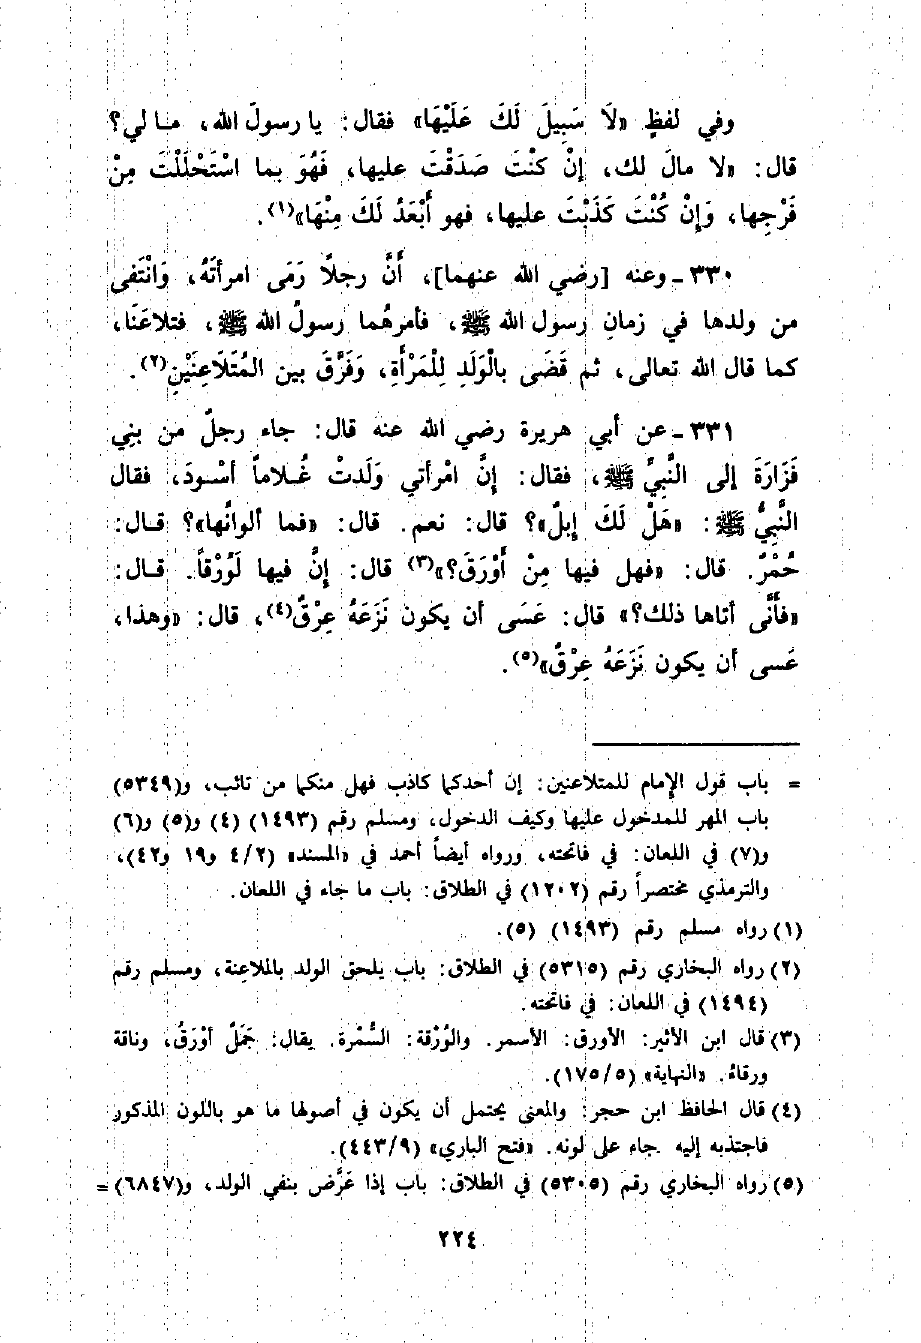 وفي لفظٍ «لَا سَبِيلَ لَكَ عَلَيْهَا» فقال: يا رسولَ الله، ما لي؟
قال: «لا مالَ لك، إنْ كنْتَ صَدَقْتَ عليها، فَهُوَ بما اسْتَحْلَلْتَ مِنْ
فَرْجِها، وَإِنْ كُنْتَ كَذَبْتَ عليها، فهو أَبْعَدُ لَكَ مِنْهَا»(١).
٣٣٠ ـ وعنه [رضي الله عنهما]، أَنَّ رجلًا رَمَى امرأتَهُ، وَانْتَفى
من ولدها في زمانِ رسول الله ﷺ، فأمرهُما رسولُ الله ﷺ، فتلاعَنَا،
كما قال الله تعالى، ثم قَضَى بالْوَلَدِ لِلْمَرْأَةِ، وَفَرَّقَ بين المُتَلَاعِنَيْنِ(٢).
٣٣١ ـ عن أبي هريرة رضي الله عنه قال: جاء رجلٌ من بني
فَزَارَةَ إلى النَّبيِّ ﷺ، فقال: إنَّ امْرأتي وَلَدتْ غُلاماً أسْودَ، فقال
النَّبيُّ ﷺ: «هَلْ لَكَ إبلٌ»؟ قال: نعم. قال: «فما ألوانُها»؟ قال:
حُمْرٌ. قال: «فهل فيها مِنْ أَوْرَقَ؟»(٣) قال: إنَّ فيها لَوُرْقاً. قال:
«فأَنَّى أتاها ذلك؟» قال: عَسَى أن يكون نَزَعَهُ عِرْقٌ(٤)، قال: «وهذا،
عَسى أن يكون نَزَعَهُ عِرْقٌ»(٥).
= باب قول الإمام للمتلاعنين: إن أحدكما كاذب فهل منكما من تائب، و(٥٣٤٩)
باب المهر للمدخول عليها وكيف الدخول، ومسلم رقم (١٤٩٣) (٤) و(٥) و(٦)
و(٧) في اللعان: في فاتحته، ورواه أيضاً أحمد في «المسند» (٤/٢ و١٩ و٤٢)،
والترمذي مختصراً رقم (١٢٠٢) في الطلاق: باب ما جاء في اللعان.
(١) رواه مسلم رقم (١٤٩٣) (٥).
(٢) رواه البخاري رقم (٥٣١٥) في الطلاق: باب يلحق الولد بالملاعنة، ومسلم رقم
(١٤٩٤) في اللعان: في فاتحته.
(٣) قال ابن الأثير: الأورق: الأسمر. والوُرْقة: السُّمْرة. يقال: جَمَلٌ أوْرَقُ، وناقة
ورقاءُ. «النهاية» (١٧٥/٥).
(٤) قال الحافظ ابن حجر: والمعنى يحتمل أن يكون في أصولها ما هو باللون المذكور
فاجتذبه إليه جاء على لونه. «فتح الباري» (٤٤٣/٩).
(٥) رواه البخاري رقم (٥٣٠٥) في الطلاق: باب إذا عَرَّض بنفي الولد، و(٦٨٤٧) =
٢٢٤